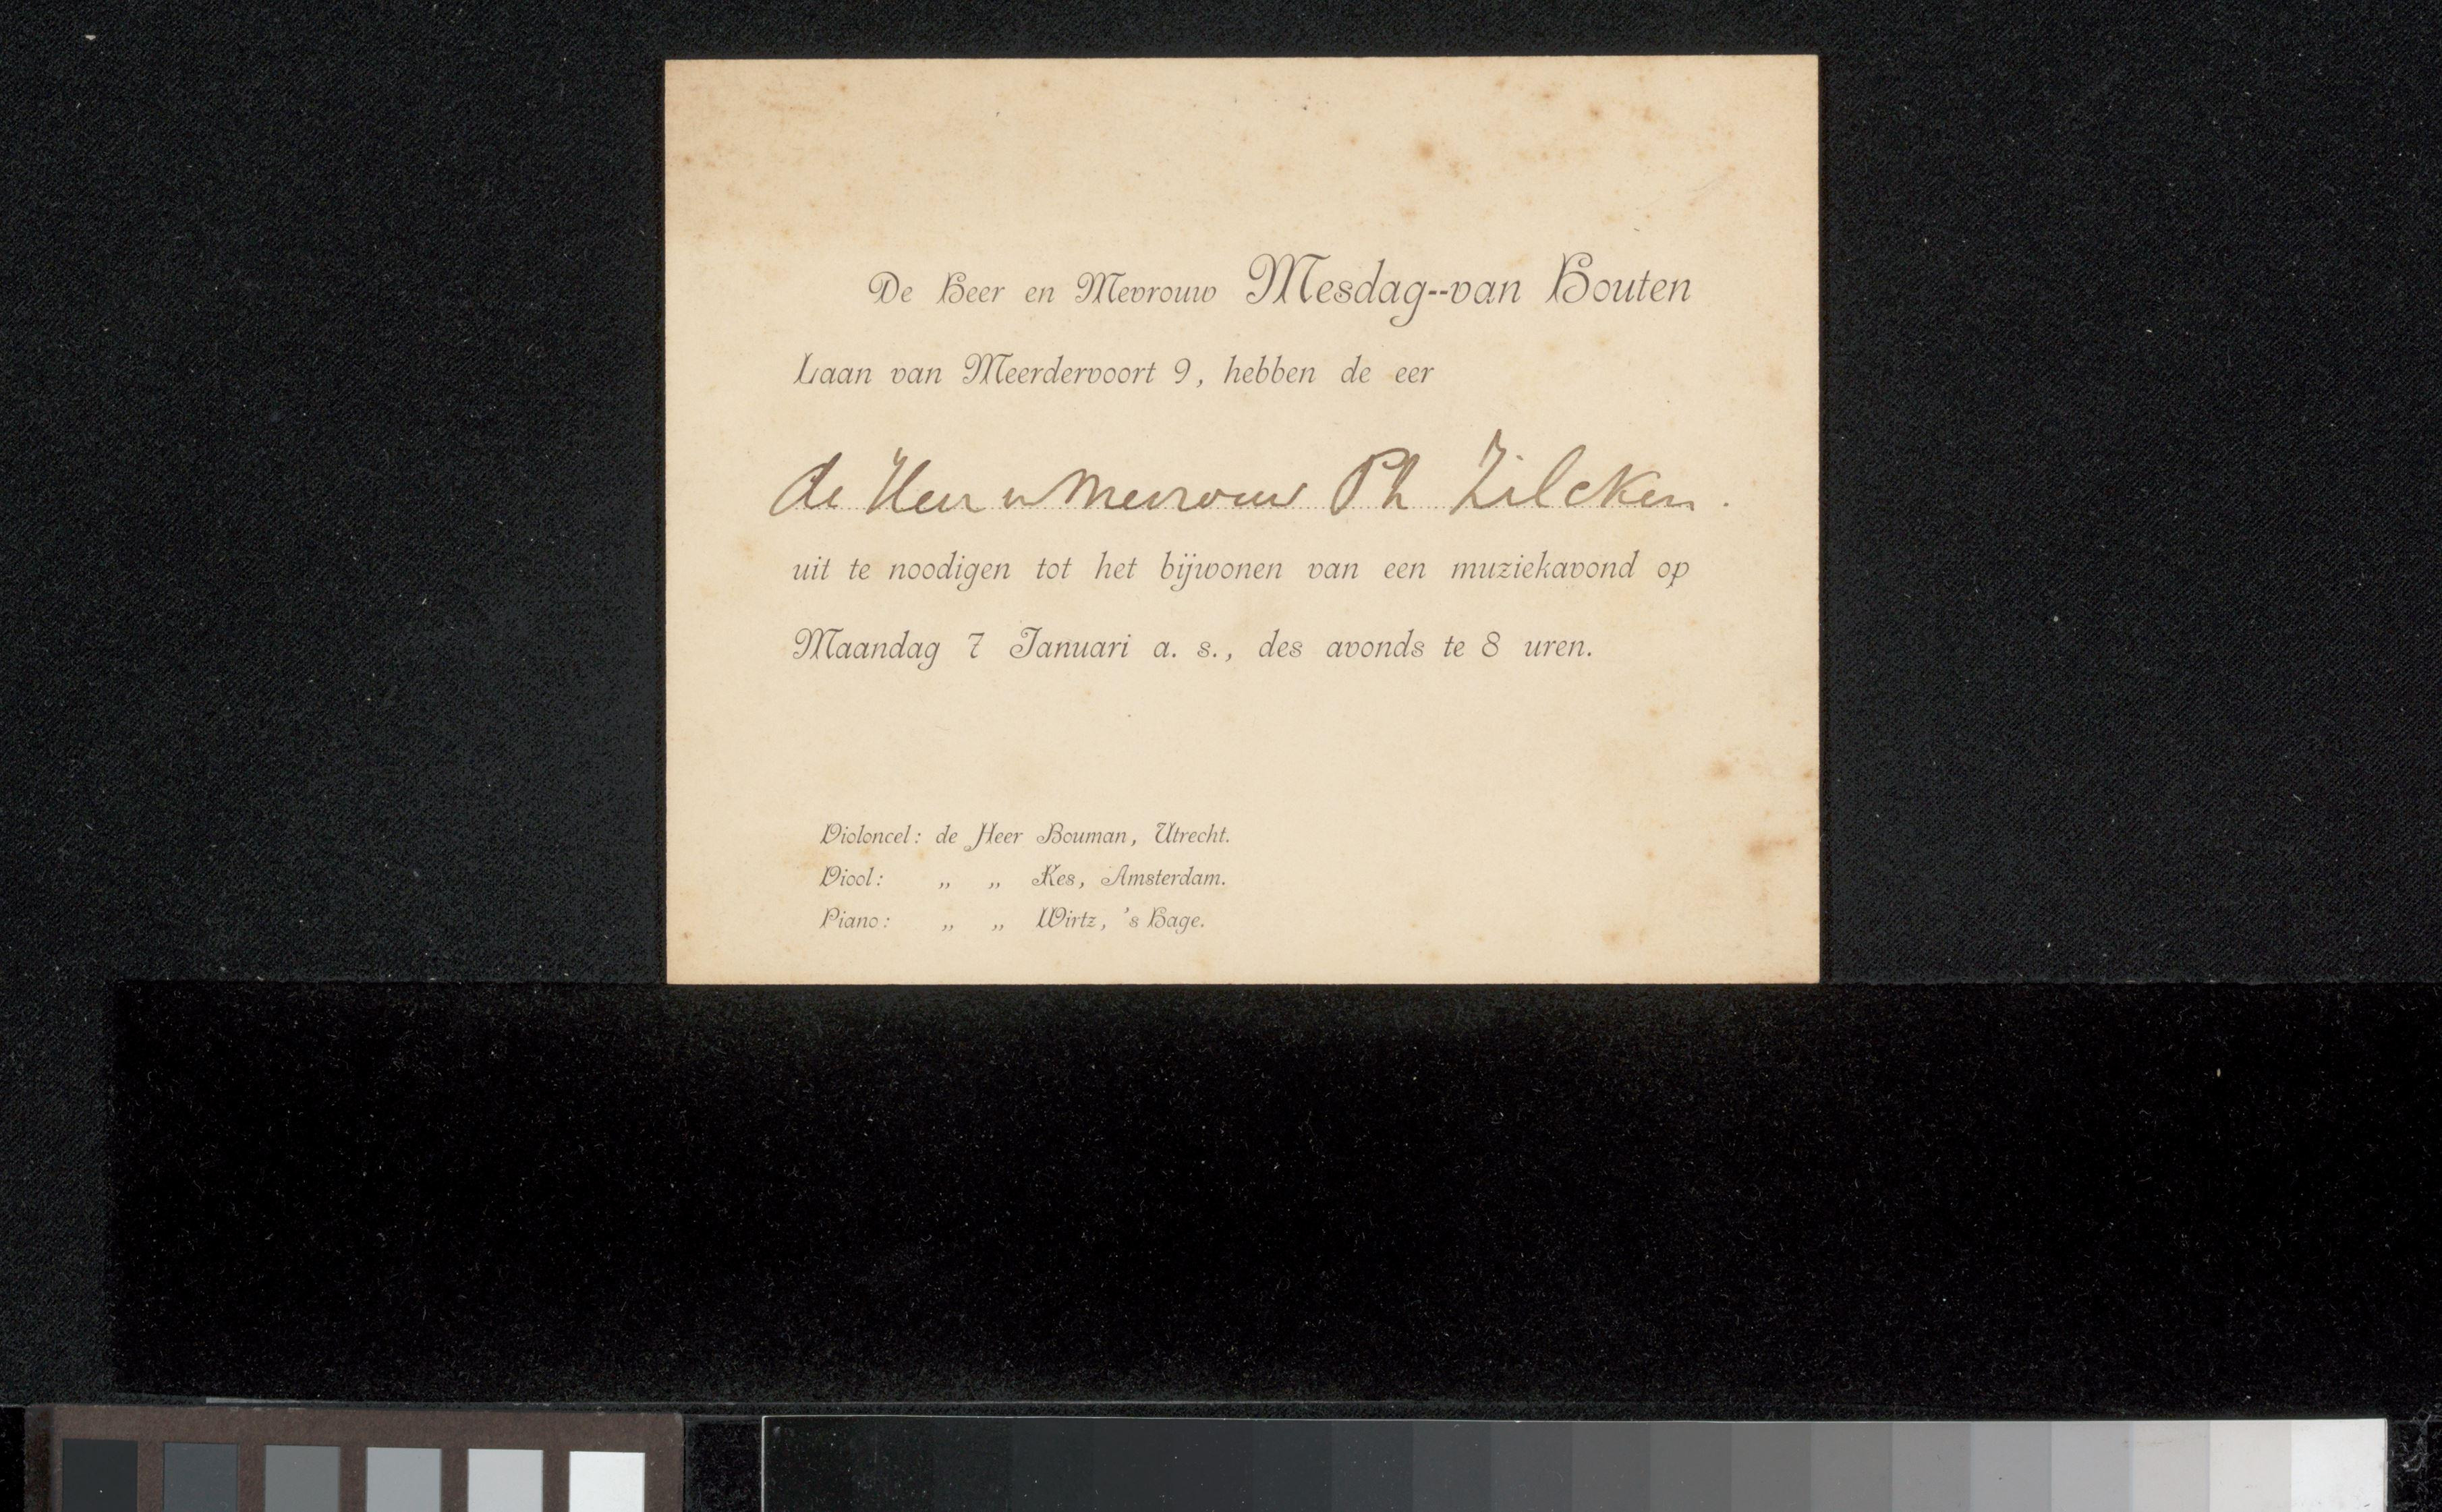 De Heer en Mevrouw Mesdag--van Houten
Laan van Meerdervoort 9, hebben de eer
de Heer en Mevrouw Ph Zilcken.
uit te noodigen tot het bijwonen van een muziekavond op
Maandag 7 Januari a. s., des avonds te 8 uren.
Violoncel: de Heer Bouman, Utrecht.
Viool: „ „ Kes, Amsterdam.
Piano: „ „ Wirtz, 's Hage.